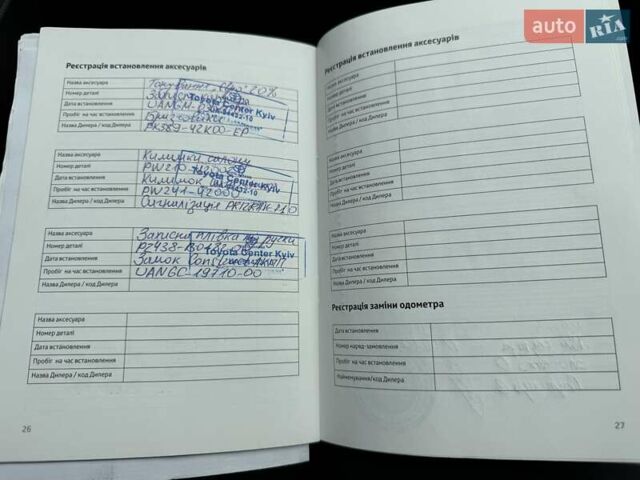 auto RIA.com
Реєстрація встановлення аксесуарів
Назва аксесуара
Номер деталі
Дата встановлення
Пробіг на час встановлення
Назва Дилера / код Дилера
20%
Toyota Center Kyiv
PK389-42K00-EP
Назва аксесуара
Килимки салону
Номер деталі
PW210-
Дата встановлення
Килимок
Toyota Center Kyiv
Пробіг на час встановлення
PW241-42000
Назва Дилера / код Дилера
Сигналізація
Назва аксесуара
Захисна плівка під ручки
Номер деталі
PZ438-
Toyota Center Kyiv
Дата встановлення
Замок
Пробіг на час встановлення
UANGC-19710-00
Назва Дилера / код Дилера
Назва аксесуара
Номер деталі
Дата встановлення
Пробіг на час встановлення
Назва Дилера / код Дилера
26
Реєстрація встановлення аксесуарів
Назва аксесуара
Номер деталі
Дата встановлення
Пробіг на час встановлення
Назва Дилера / код Дилера
Назва аксесуара
Номер деталі
Дата встановлення
Пробіг на час встановлення
Назва Дилера / код Дилера
Назва аксесуара
Номер деталі
Дата встановлення
Пробіг на час встановлення
Назва Дилера / код Дилера
Реєстрація заміни одометра
Дата встановлення
Номер наряд-замовлення
Пробіг на час встановлення
Найменування/код Дилера
27